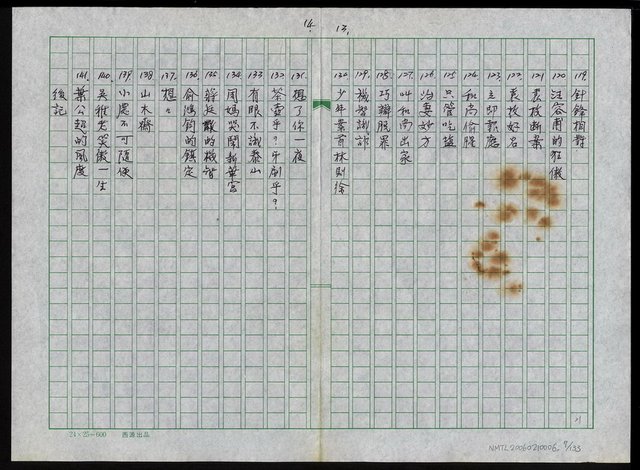 13.
119. 針鋒相對
120. 汪容甫的狂傲
121. 袁枚斷案
122. 袁枚好名
123. 立即報應
124. 和尚偷腥
125. 只管吃鹽
126. 治妻妙方
127. 叫和尚出家
128. 巧辯脫罪
129. 機智識詐
130. 少年業育林則徐
14.
131. 想了你一夜
132. 茶壺乎？牙刷乎？
133. 有眼不識泰山
134. 周媽哭鬧新華宮
135. 蔣廷黻的機智
136. 俞鴻鈞的鎮定
137. 想
138. 山木齋
139. 小處不可隨便
140. 吳稚老笑傲一生
141. 葉公超的風度
後記
24×25=600 西源出品
21
NMTL20060210006 9/133